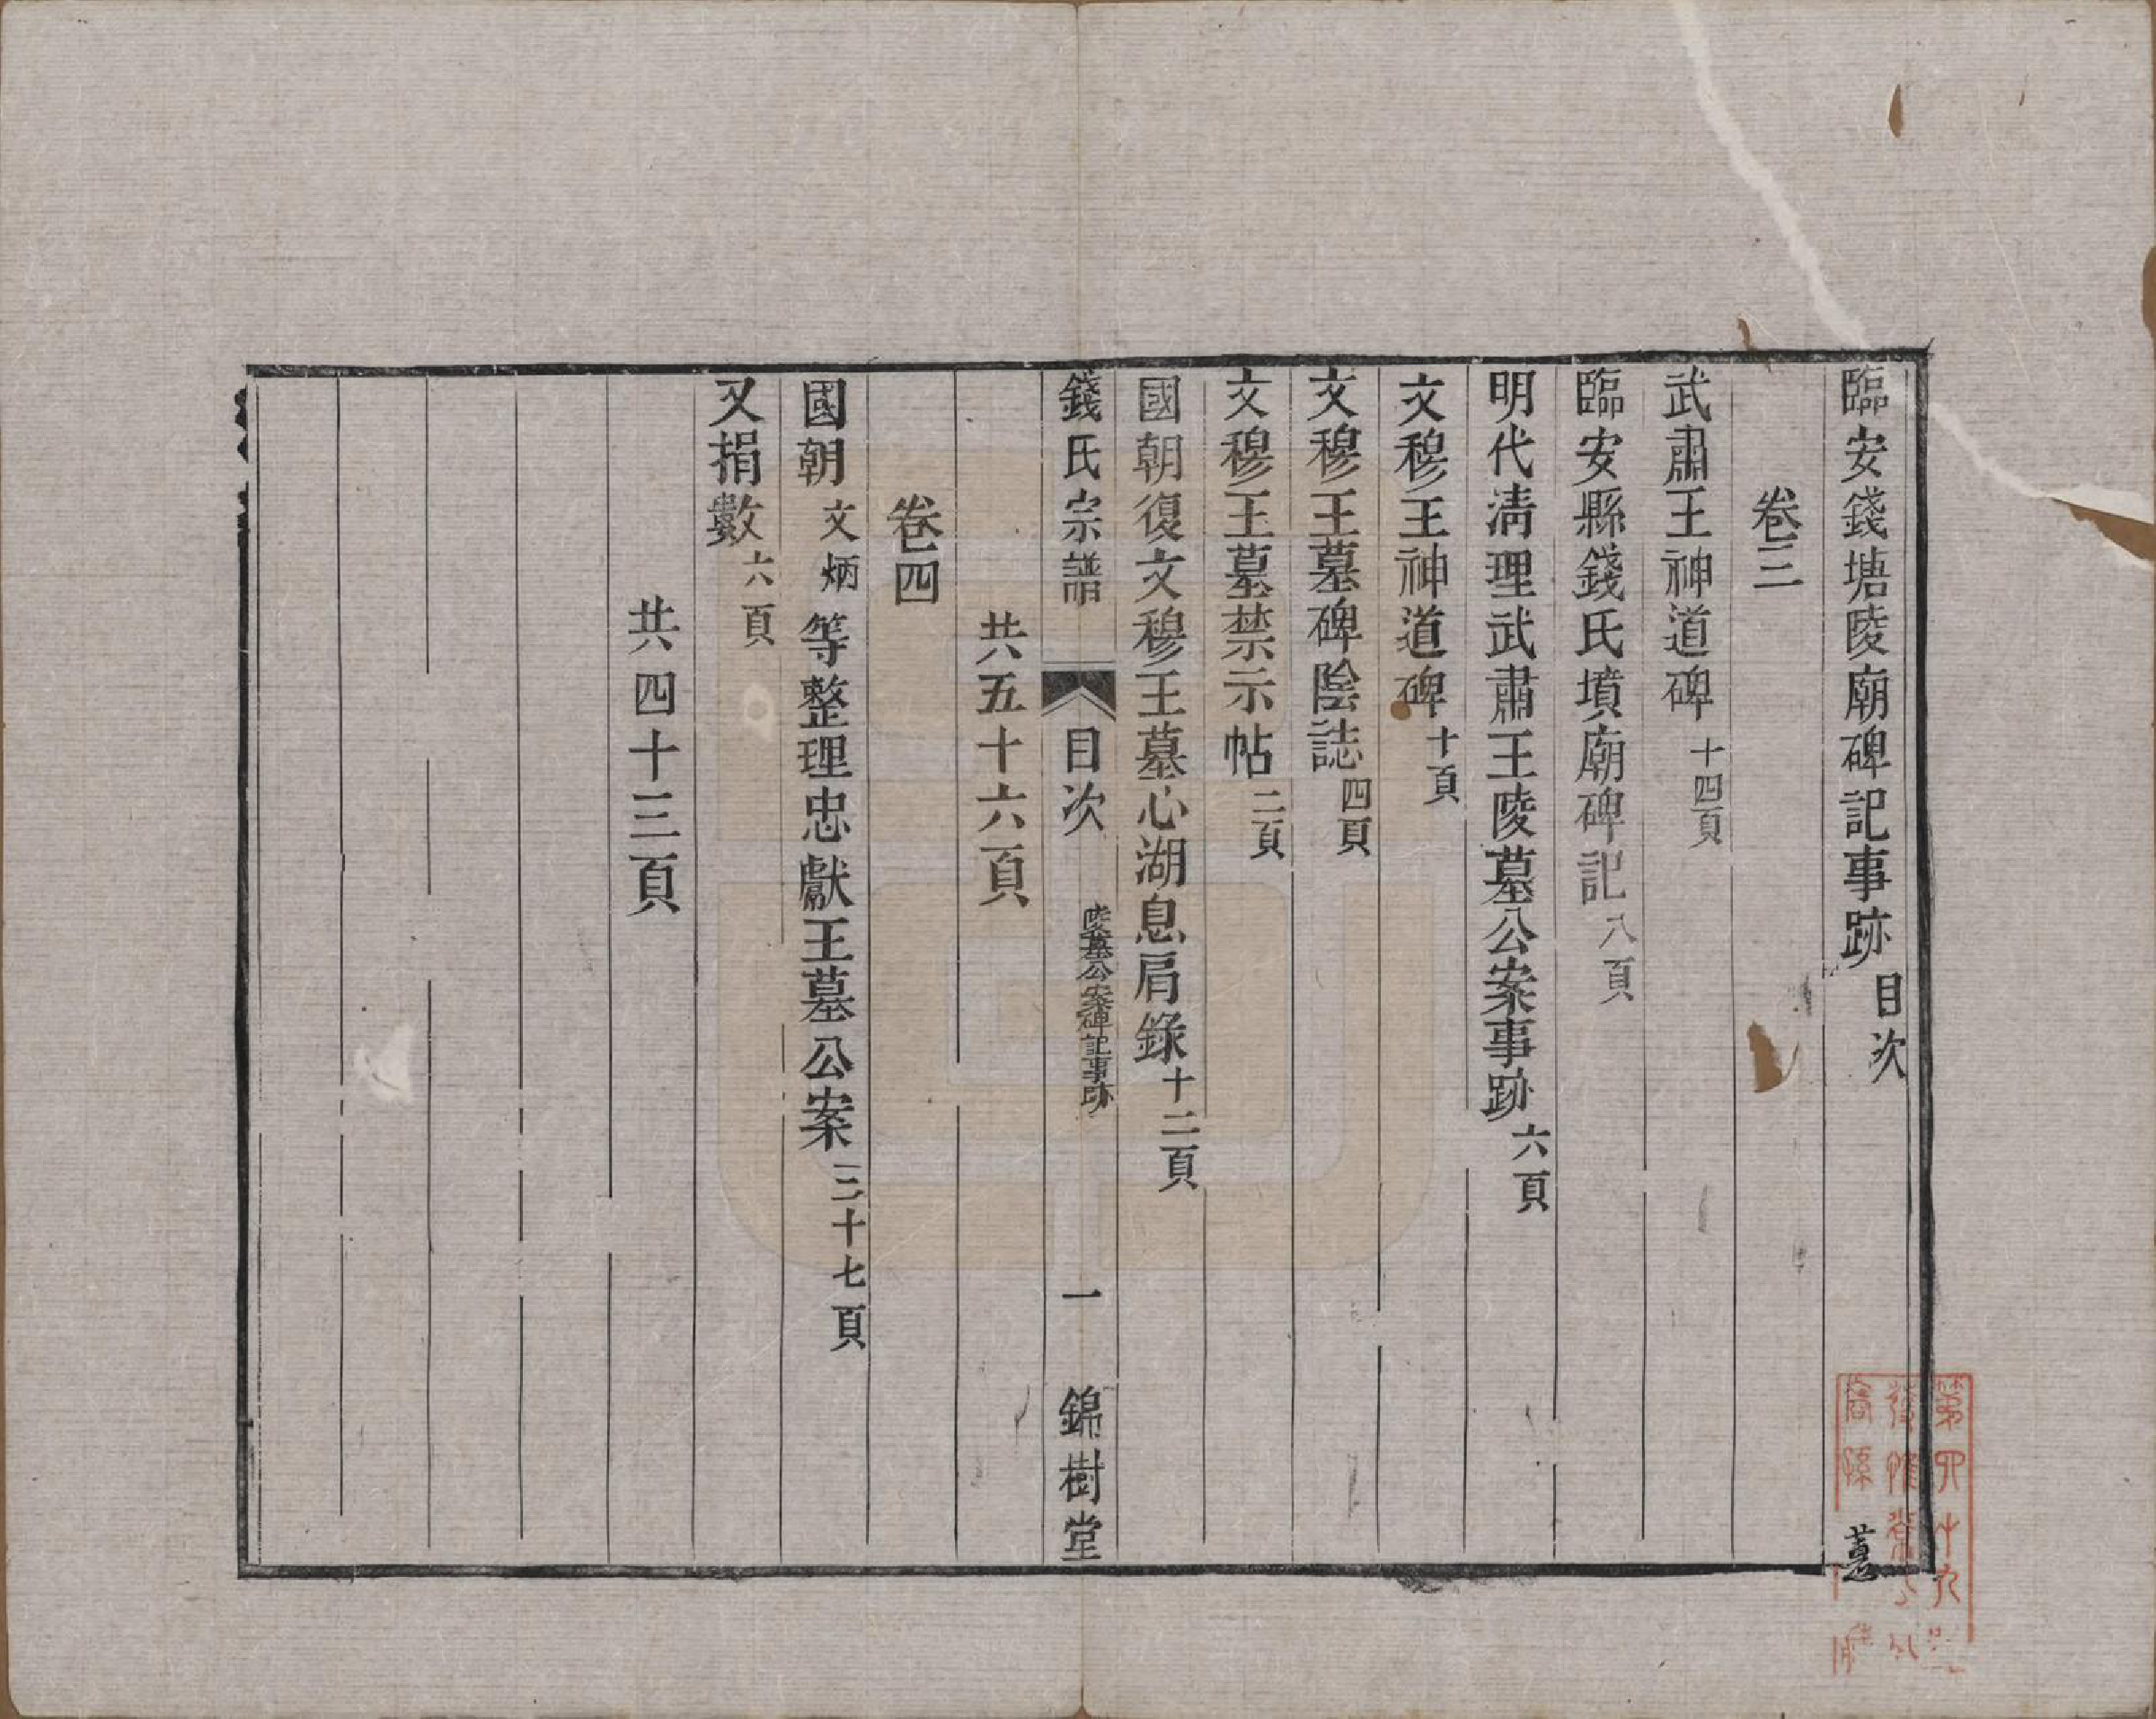 臨安錢塘陵廟碑記事跡目次
卷三
武肅王神道碑十四頁
臨安縣錢氏墳廟碑記八頁
明代淸理武肅王陵墓公案事跡六頁
文穆王神道碑十頁
文穆王墓碑陰誌四頁
文穆王墓禁示帖二頁
國朝復文穆王墓心湖息肩錄十二頁
錢氏宗譜 目次 陵墓公案碑記事跡 一 錦樹堂
共五十六頁
卷四
國朝文炳等整理忠獻王墓公案三十七頁
又捐數六頁
共四十三頁